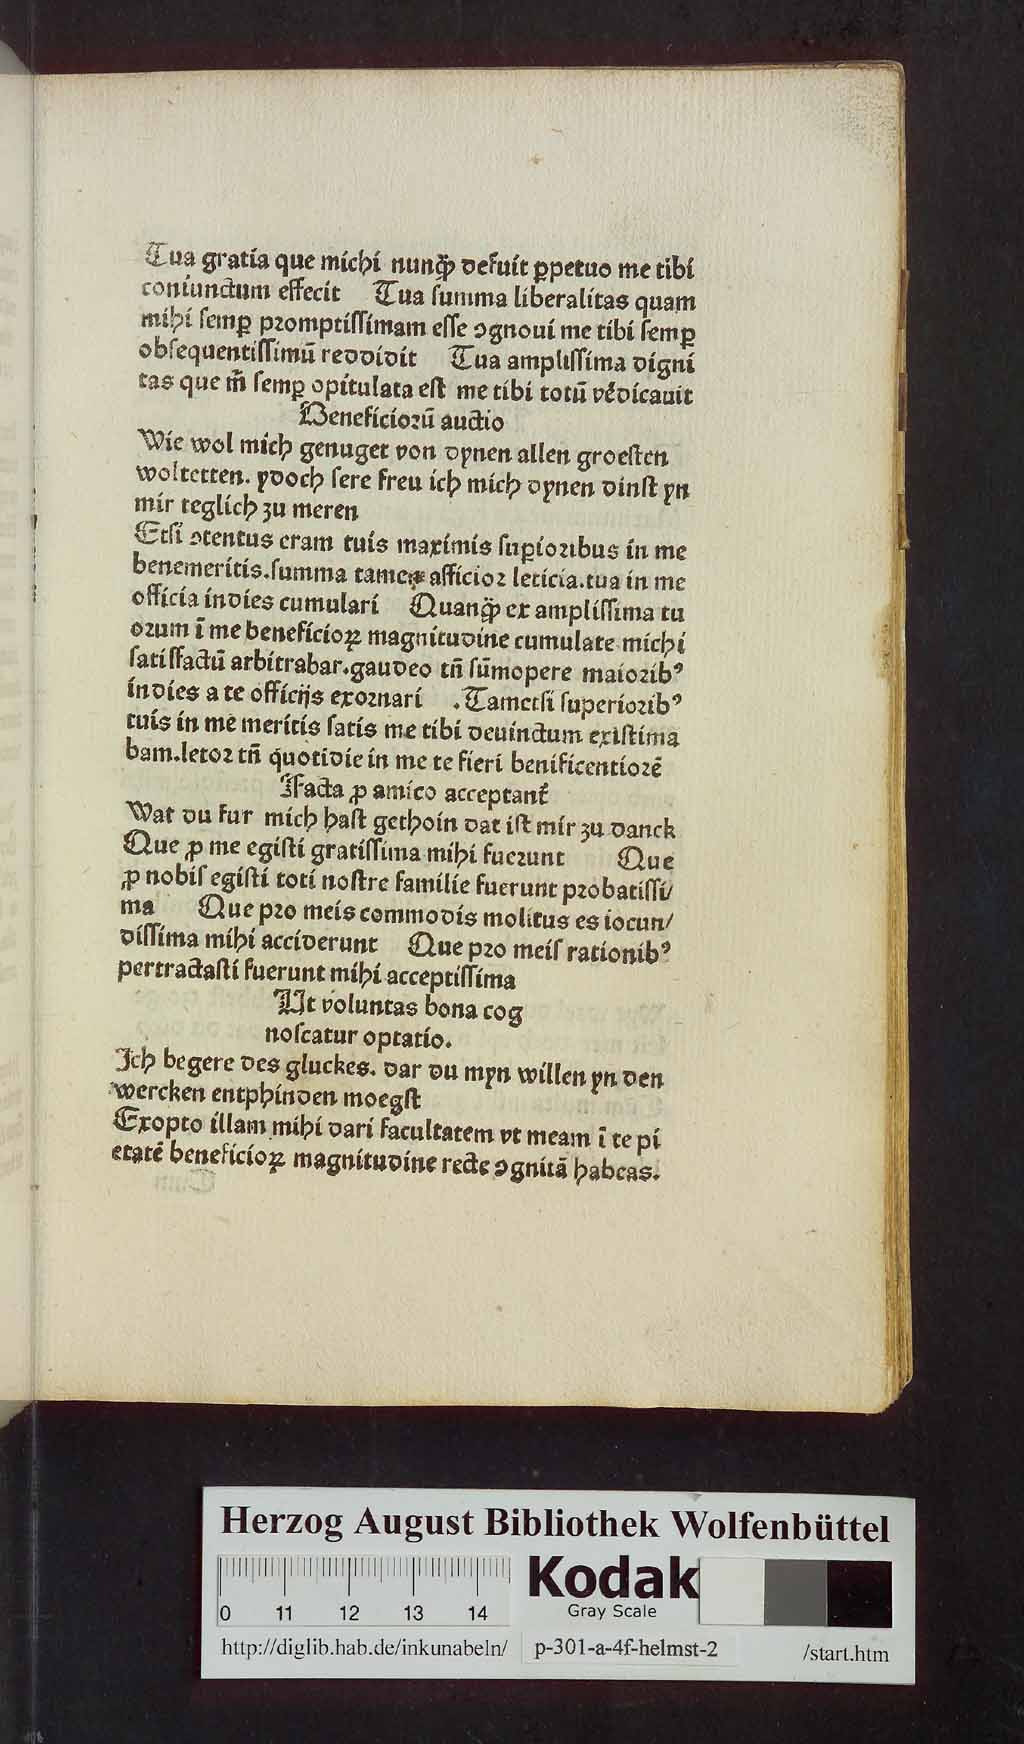 Tua gratia que michi nunꝙ̃ defuit ꝑpetuo me tibi
coniunctum effecit Tua summa liberalitas quam
mihi semꝑ promptissimam esse ꝯgnoui me tibi semꝑ
obsequentissimũ reddidit Tua amplissima digni
tas que m̃ semꝑ opitulata est me tibi totũ vẽdicauit
Beneficiorũ auctio
Wie wol mich genuget von dynen allen groesten
woltetten. ydoch sere freu ich mich dynen dinst yn
mir teglich zu meren
Etsi ꝯtentus eram tuis maximis suꝑioribus in me
benemeritis.summa tamen afficior leticia.tua in me
officia indies cumulari Quanꝙ̃ ex amplissima tu
orum ĩ me beneficioꝝ magnitudine cumulate michi
satisfactũ arbitrabar.gaudeo tñ sũmopere maiorib⁹
indies a te officijs exornari .Tametsi superiorib⁹
tuis in me meritis satis me tibi deuinctum existima
bam.letor tñ quotidie in me te fieri benificentiorẽ
Facta ꝓ amico acceptant᷑
Wat du fur mich hast gethoin dat ist mir zu danck
Que ꝓ me egisti gratissima mihi fuerunt Que
ꝓ nobis egisti toti nostre familie fuerunt probatissi/
ma Que pro meis commodis molitus es iocun/
dissima mihi acciderunt Que pro meis rationib⁹
pertractasti fuerunt mihi acceptissima
Ut voluntas bona cog
noscatur optatio.
Ich begere des gluckes. dar du myn willen yn den
wercken entphinden moegst
Exopto illam mihi dari facultatem vt meam ĩ te pi
etatẽ beneficioꝝ magnitudine recte ꝯgnitã habeas.
Herzog August Bibliothek Wolfenbüttel
Kodak
Gray Scale
0 11 12 13 14
http://diglib.hab.de/inkunabeln/ p-301-a-4f-helmst-2 /start.htm